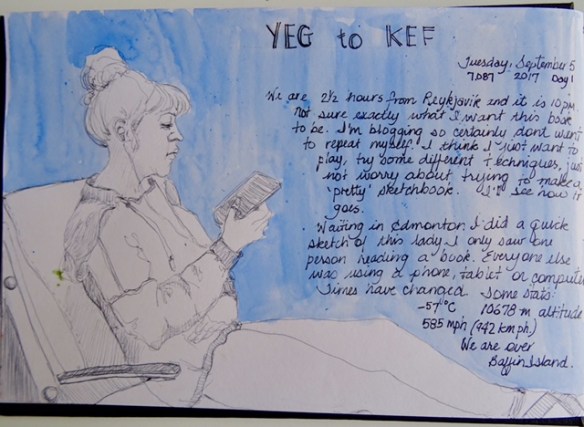 YEG to KEF
Tuesday, September 5
2017 Day 1
We are 2½ hours from Reykjavik and it is 10 pm
not sure exactly what I want this book
to be. I'm blogging so certainly dont want
to repeat myself. I think I just want to
play, try some different techniques, just
not worry about trying to make a
'pretty' sketchbook. I'll see how it
goes.
Waiting in Edmonton I did a quick
sketch of this lady. I only saw one
person reading a book. Everyone else
was using a phone, tablet or computer
Times have changed. Some stats:
-57°C 10678 m altitude
585 mph (942 kmph.)
We are over
Baffin Island.